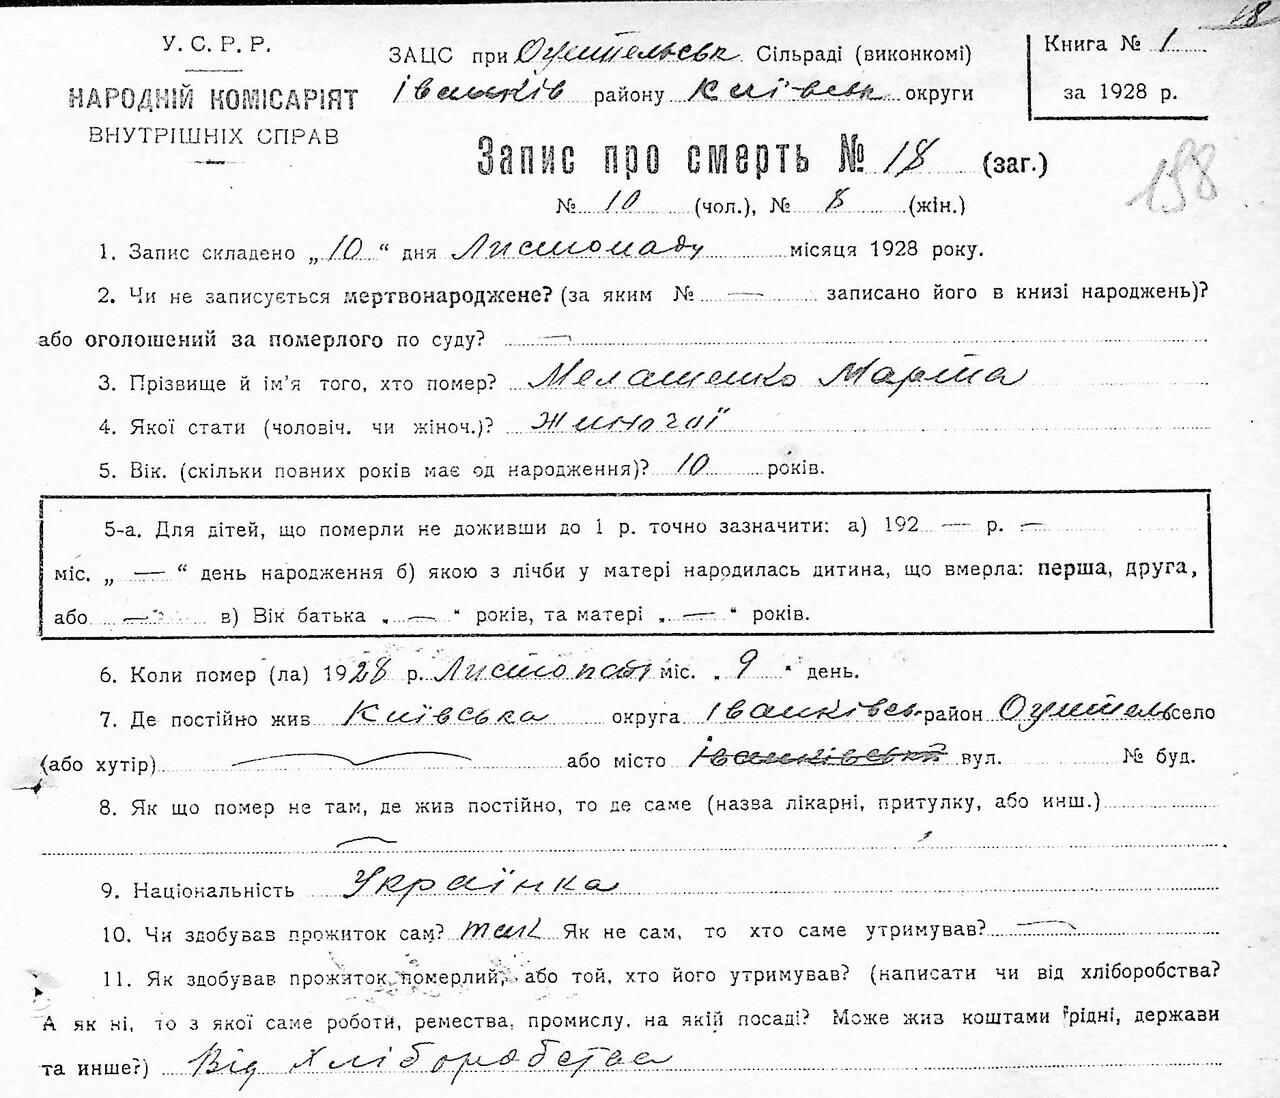 18
У. С. Р. Р.
НАРОДНІЙ КОМІСАРІЯТ
ВНУТРІШНІХ СПРАВ
ЗАЦС при Сільраді (виконкомі)
Іванків району Київськ округи
Книга № 1
за 1928 р.
Запис про смерть № 18 (заг.)
198
№ 10 (чол.), № 8 (жін.)
1. Запис складено „ 10 “ дня Листопаду місяця 1928 року.
2. Чи не записується мертвонароджене? (за яким № — записано його в книзі народжень)?
або оголошений за померлого по суду? —
3. Прізвище й ім’я того, хто помер? Мелашенко Марта
4. Якої стати (чоловіч. чи жіноч.)? Жиночої
5. Вік. (скільки повних років має од народження)? 10 років.
5-а. Для дітей, що померли не доживши до 1 р. точно зазначити: а) 192 — р. —
міс. „ — “ день народження б) якою з лічби у матері народилась дитина, що вмерла: перша, друга,
або — в) Вік батька „ — “ років, та матері „ — “ років.
6. Коли помер (ла) 1928 р. Листопаді міс. „ 9 “ день.
7. Де постійно жив Київська округа Іванківськ район село
(або хутір) — або місто Іванківський вул. № буд.
8. Як що помер не там, де жив постійно, то де саме (назва лікарні, притулку, або инш.)
—
9. Національність Українка
10. Чи здобував прожиток сам? так Як не сам, то хто саме утримував? —
11. Як здобував прожиток померлий, або той, хто його утримував? (написати чи від хліборобства?
А як ні, то з якої саме роботи, ремества, промислу, на якій посаді? Може жив коштами рідні, держави
та инше?) Від хліборобства